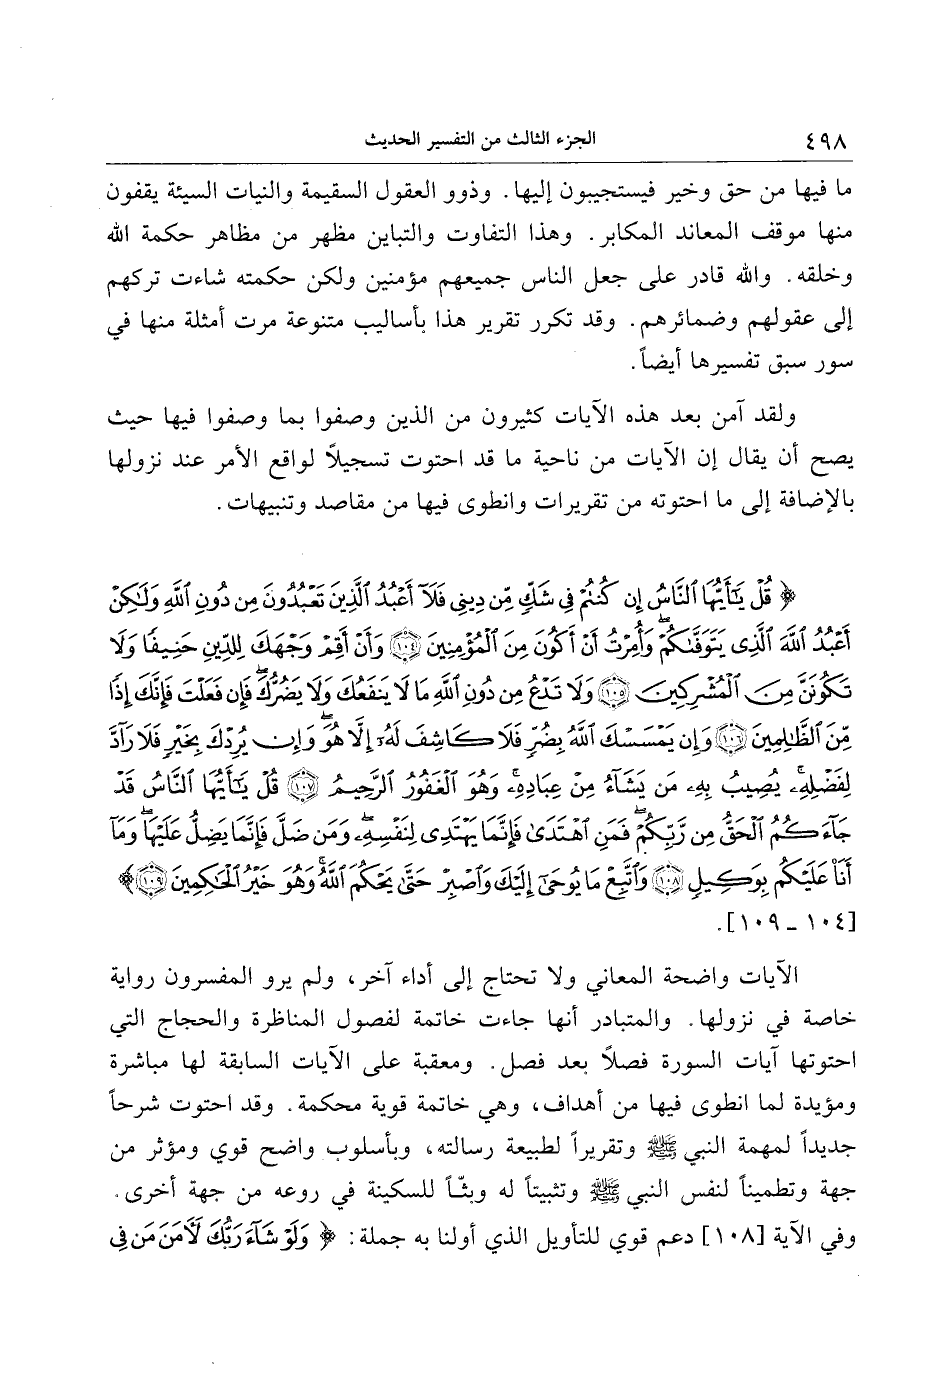 ٤٩٨ الجزء الثالث من التفسير الحديث
ما فيها من حق وخير فيستجيبون إليها. وذوو العقول السقيمة والنيات السيئة يقفون
منها موقف المعاند المكابر. وهذا التفاوت والتباين مظهر من مظاهر حكمة الله
وخلقه. والله قادر على جعل الناس جميعهم مؤمنين ولكن حكمته شاءت تركهم
إلى عقولهم وضمائرهم. وقد تكرر تقرير هذا بأساليب متنوعة مرت أمثلة منها في
سور سبق تفسيرها أيضاً.
ولقد آمن بعد هذه الآيات كثيرون من الذين وصفوا بما وصفوا فيها حيث
يصح أن يقال إن الآيات من ناحية ما قد احتوت تسجيلاً لواقع الأمر عند نزولها
بالإضافة إلى ما احتوته من تقريرات وانطوى فيها من مقاصد وتنبيهات.
﴿ قُلْ يَٰٓأَيُّهَا ٱلنَّاسُ إِن كُنتُمْ فِى شَكٍّۢ مِّن دِينِى فَلَآ أَعْبُدُ ٱلَّذِينَ تَعْبُدُونَ مِن دُونِ ٱللَّهِ وَلَٰكِنْ
أَعْبُدُ ٱللَّهَ ٱلَّذِى يَتَوَفَّىٰكُمْ ۖ وَأُمِرْتُ أَنْ أَكُونَ مِنَ ٱلْمُؤْمِنِينَ ١٠٤ وَأَنْ أَقِمْ وَجْهَكَ لِلدِّينِ حَنِيفًا وَلَا
تَكُونَنَّ مِنَ ٱلْمُشْرِكِينَ ١٠٥ وَلَا تَدْعُ مِن دُونِ ٱللَّهِ مَا لَا يَنفَعُكَ وَلَا يَضُرُّكَ ۖ فَإِن فَعَلْتَ فَإِنَّكَ إِذًا
مِّنَ ٱلظَّٰلِمِينَ ١٠٦ وَإِن يَمْسَسْكَ ٱللَّهُ بِضُرٍّۢ فَلَا كَاشِفَ لَهُۥٓ إِلَّا هُوَ ۖ وَإِن يُرِدْكَ بِخَيْرٍۢ فَلَا رَآدَّ
لِفَضْلِهِۦ ۚ يُصِيبُ بِهِۦ مَن يَشَآءُ مِنْ عِبَادِهِۦ ۚ وَهُوَ ٱلْغَفُورُ ٱلرَّحِيمُ ١٠٧ قُلْ يَٰٓأَيُّهَا ٱلنَّاسُ قَدْ
جَآءَكُمُ ٱلْحَقُّ مِن رَّبِّكُمْ ۖ فَمَنِ ٱهْتَدَىٰ فَإِنَّمَا يَهْتَدِى لِنَفْسِهِۦ ۖ وَمَن ضَلَّ فَإِنَّمَا يَضِلُّ عَلَيْهَا ۖ وَمَآ
أَنَا۠ عَلَيْكُم بِوَكِيلٍۢ ١٠٨ وَٱتَّبِعْ مَا يُوحَىٰٓ إِلَيْكَ وَٱصْبِرْ حَتَّىٰ يَحْكُمَ ٱللَّهُ ۚ وَهُوَ خَيْرُ ٱلْحَٰكِمِينَ ١٠٩ ﴾
[١٠٤ ـ ١٠٩].
الآيات واضحة المعاني ولا تحتاج إلى أداء آخر، ولم يرو المفسرون رواية
خاصة في نزولها. والمتبادر أنها جاءت خاتمة لفصول المناظرة والحجاج التي
احتوتها آيات السورة فصلاً بعد فصل. ومعقبة على الآيات السابقة لها مباشرة
ومؤيدة لما انطوى فيها من أهداف، وهي خاتمة قوية محكمة. وقد احتوت شرحاً
جديداً لمهمة النبي ﷺ وتقريراً لطبيعة رسالته، وبأسلوب واضح قوي ومؤثر من
جهة وتطميناً لنفس النبي ﷺ وتثبيتاً له وبثّاً للسكينة في روعه من جهة أخرى.
وفي الآية [١٠٨] دعم قوي للتأويل الذي أولنا به جملة: ﴿ وَلَوْ شَآءَ رَبُّكَ لَءَامَنَ مَن فِى